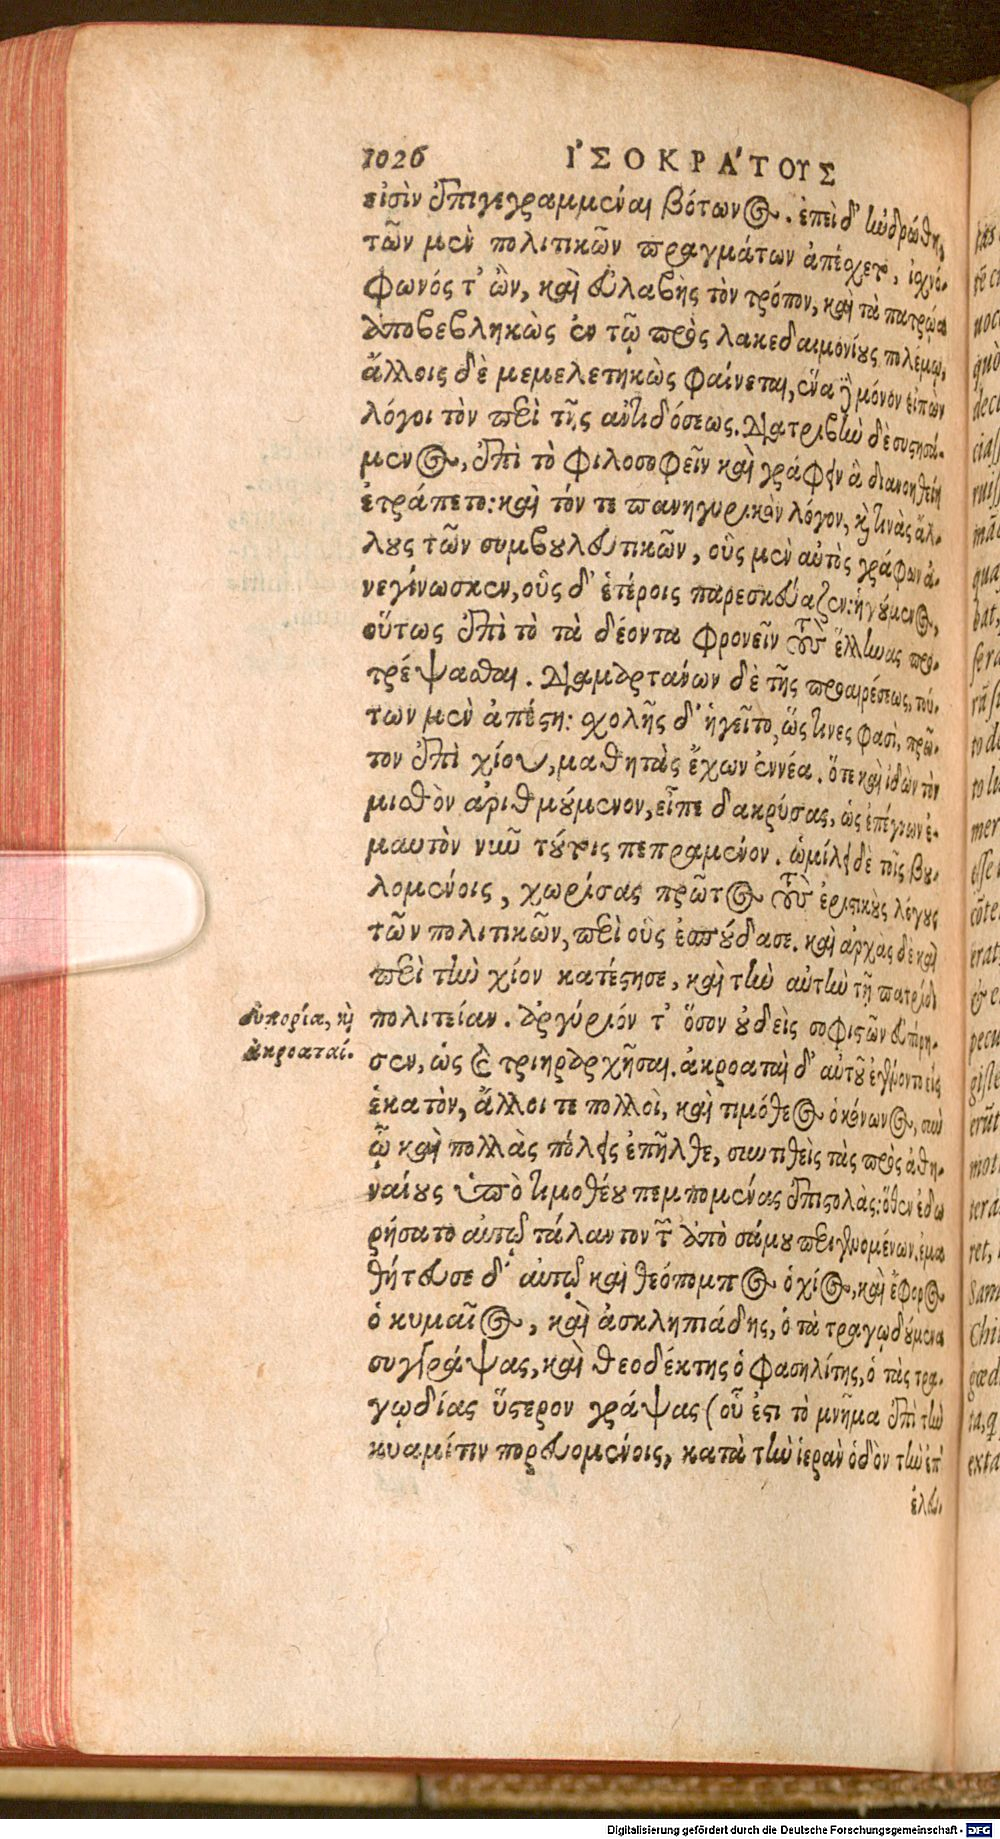 1026 ἸΣΟΚΡΆΤΟΥΣ
εἰσὶν ἐπιγεγραμμέναι βότωνος. ἐπεὶ δ' ἠνδρώθη,
τῶν μὲν πολιτικῶν πραγμάτων ἀπέσχετο, ἰσχνό-
φωνός τ' ὢν, καὶ εὐλαβὴς τὸν τρόπον, καὶ τὰ πατρῷα
ἀποβεβληκὼς ἐν τῷ πρὸς λακεδαιμονίους πολέμῳ,
ἄλλοις δὲ μεμελετηκὼς φαίνεται, ἕνα δὲ μόνον εἰπὼν
λόγοι τὸν περὶ τῆς ἀντιδόσεως. Διατριβὴν δὲ συστησά-
μενος, ἐπὶ τὸ φιλοσοφεῖν καὶ γράφειν ἃ διανοηθείη
ἐτράπετο: καὶ τόν τε πανηγυρικὸν λόγον, καὶ τινὰς ἄλ-
λους τῶν συμβουλευτικῶν, οὓς μὲν αὐτὸς γράφων ἀ-
νεγίνωσκεν, οὓς δ' ἑτέροις παρεσκεύαζεν: ἡγούμενος,
οὕτως ἐπὶ τὸ τὰ δέοντα φρονεῖν τοὺς ἕλληνας προ-
τρέψασθαι. Διαμαρτάνων δὲ τῆς προαιρέσεως, τού-
των μὲν ἀπέστη: σχολῆς δ' ἡγεῖτο, ὥς τινες φασὶ, πρῶ-
τον ἐπὶ χίου, μαθητὰς ἔχων ἐννέα. ὅτε καὶ ἰδὼν τὸν
μισθὸν ἀριθμούμενον, εἶπε δακρύσας, ὡς ἐπέγνων ἐ-
μαυτὸν νῦν τούτοις πεπραμένον. ὡμίλει δὲ τοῖς βου-
λομένοις, χωρίσας πρῶτος τοὺς ἐριστικοὺς λόγους
τῶν πολιτικῶν, περὶ οὓς ἐσπούδασε. καὶ ἀρχὰς δὲ καὶ
περὶ τὴν χίον κατέστησε, καὶ τὴν αὐτὴν τῇ πατρίδι
πολιτείαν. ἀργύριόν τ' ὅσον οὐδεὶς σοφιστῶν εὐπόρη-
εὐπορία, καὶ
ἀκροαταί.
σεν, ὡς καὶ τριηραρχῆσαι. ἀκροαταὶ δ' αὐτοῦ ἐγένοντο εἰς
ἑκατὸν, ἄλλοι τε πολλοὶ, καὶ τιμόθεος ὁ κόνωνος, σὺν
ᾧ καὶ πολλὰς πόλεις ἐπῆλθε, συντιθεὶς τὰς πρὸς ἀθη-
ναίους ὑπὸ τιμοθέου πεμπομένας ἐπιστολάς: ὅθεν ἐδω
ρήσατο αὐτῷ τάλαντον τῶν ἀπὸ σάμου περιγενομένων. ἐμα
θήτευσε δ' αὐτῷ καὶ θεόπομπος ὁ χῖος, καὶ ἔφορος
ὁ κυμαῖος, καὶ ἀσκληπιάδης, ὁ τὰ τραγῳδούμενα
συγγράψας, καὶ θεοδέκτης ὁ φασηλίτης, ὁ τὰς τρα-
γῳδίας ὕστερον γράψας (οὗ ἐστι τὸ μνῆμα ἐπὶ τὴν
κυαμίτιν πορευομένοις, κατὰ τὴν ἱερὰν ὁδὸν τὴν ἐπ'
ἐλευ-
Digitalisierung gefördert durch die Deutsche Forschungsgemeinschaft - DFG